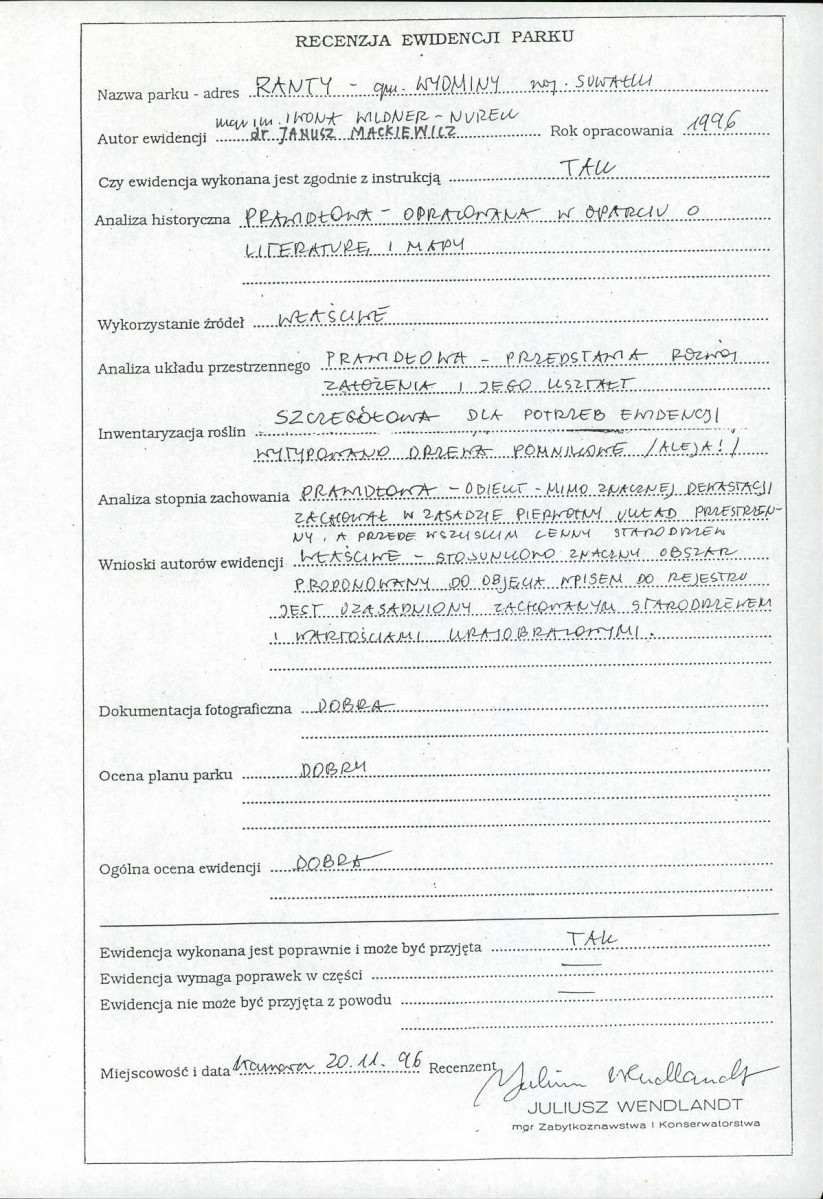 RECENZJA EWIDENCJI PARKU
Nazwa parku - adres RANTY - gm. WYDMINY woj. SUWAŁKI
mgr inż. IWONA WILDNER - NUREK
Autor ewidencji dr. JANUSZ MACKIEWICZ Rok opracowania 1996
Czy ewidencja wykonana jest zgodnie z instrukcją TAK
Analiza historyczna PRAWIDŁOWA - OPRACOWANA W OPARCIU O
LITERATURĘ I MAPY
Wykorzystanie źródeł WŁAŚCIWE
Analiza układu przestrzennego PRAWIDŁOWA - PRZEDSTAWIA ROZWÓJ
ZAŁOŻENIA I JEGO KSZTAŁT
Inwentaryzacja roślin SZCZEGÓŁOWA DLA POTRZEB EWIDENCJI
WYTYPOWANO DRZEWA POMNIKOWE /ALEJA!/
Analiza stopnia zachowania PRAWIDŁOWA - OBIEKT - MIMO ZNACZNEJ DEWASTACJI
ZACHOWAŁ W ZASADZIE PIERWOTNY UKŁAD PRZESTRZEN-
NY, A PRZEDE WSZYSTKIM CENNY STARODRZEW
Wnioski autorów ewidencji WŁAŚCIWE - STOSUNKOWO ZNACZNY OBSZAR
PROPONOWANY DO OBJĘCIA WPISEM DO REJESTRU
JEST UZASADNIONY ZACHOWANYM STARODRZEWEM
I WARTOŚCIAMI KRAJOBRAZOWYMI.
Dokumentacja fotograficzna DOBRA
Ocena planu parku DOBRY
Ogólna ocena ewidencji DOBRA
Ewidencja wykonana jest poprawnie i może być przyjęta TAK
Ewidencja wymaga poprawek w części —
Ewidencja nie może być przyjęta z powodu —
Miejscowość i data 20.11.96 Recenzent Juliusz Wendlandt
JULIUSZ WENDLANDT
mgr Zabytkoznawstwa i Konserwatorstwa